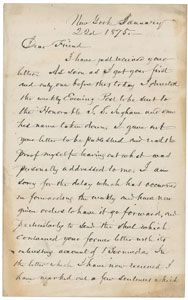 New York January
22d 1875.
Dear Friend
I have just received your
letter. As soon as I got your first
and only one before this today I directed
the weekly Evening Post to be sent to
the Honorable J. S. Ingham and
his name taken down. I gave out
your letter to be published and read the
proof myself leaving out what was
personally addressed to me. I am
sorry for the delay which has occurred
in forwarding the weekly and have now
given orders to have it go forward, and
particularly to send the sheet which
contained your former letter with its
interesting account of Bermuda. In
the letter which I have now received I
have marked out a few sentences which